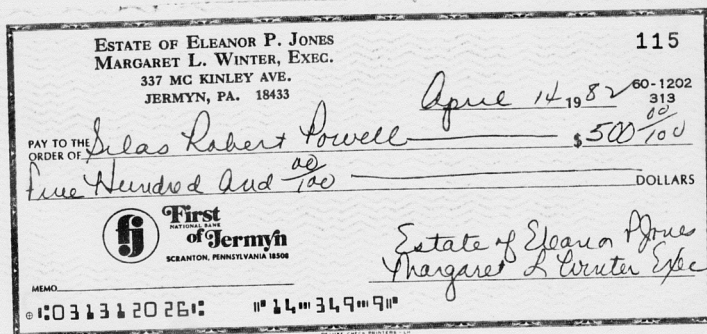 ESTATE OF ELEANOR P. JONES 115
MARGARET L. WINTER, EXEC.
337 MC KINLEY AVE.
JERMYN, PA. 18433
April 14 1982 60-1202
313
PAY TO THE ORDER OF Silas Robert Powell $ 500 00/100
Five Hundred and 00/100 DOLLARS
fj First
NATIONAL BANK
of Jermyn
SCRANTON, PENNSYLVANIA 18508
Estate of Eleanor P Jones
Margaret L Winter Exec
MEMO
⑆031312026⑆ ⑈14⑉349⑉9⑈